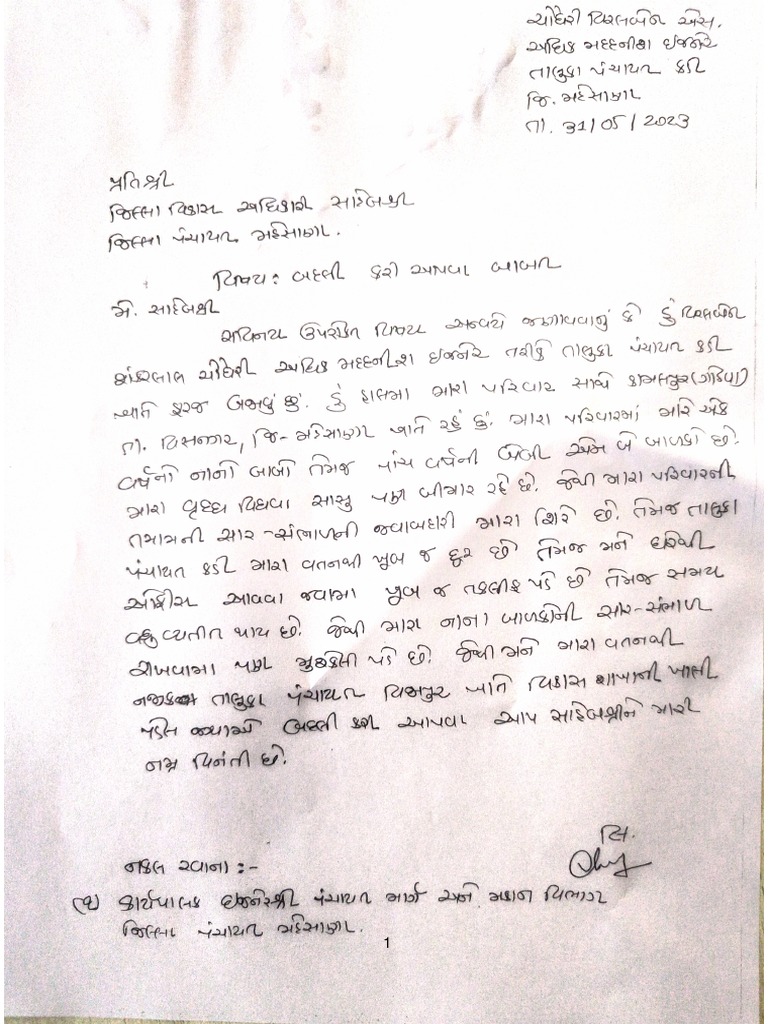 ચૌધરી વિરલબેન એસ.
અધિક મદદનીશ ઇજનેર
તાલુકા પંચાયત કડી
જિ. મહેસાણા
તા. 31/05/2023
પ્રતિશ્રી
જિલ્લા વિકાસ અધિકારી સાહેબશ્રી
જિલ્લા પંચાયત મહેસાણા.
વિષય: બદલી કરી આપવા બાબત
મે. સાહેબશ્રી
સવિનય ઉપરોક્ત વિષય અન્વયે જણાવવાનું કે હું વિરલબેન
શંકરલાલ ચૌધરી અધિક મદદનીશ ઇજનેર તરીકે તાલુકા પંચાયત કડી
ખાતે ફરજ બજાવું છું. હું હાલમા મારા પરિવાર સાથે કમાલપુર(ગોઠવા)
તા. વિસનગર, જિ-મહેસાણા ખાતે રહું છું. મારા પરિવારમાં મારે એક
વર્ષનો નાનો બાબો તેમજ પાંચ વર્ષની બેબી એમ બે બાળકો છે.
મારા વૃદ્ધ વિધવા સાસુ પણ બીમાર રહે છે. જેથી મારા પરિવારની
તમામની સાર-સંભાળની જવાબદારી મારા શિરે છે. તેમજ તાલુકા
પંચાયત કડી મારા વતનથી ખુબ જ દૂર છે તેમજ મને ઘરેથી
ઓફીસ આવવા જવામા ખુબ જ તકલીફ પડે છે તેમજ સમય
વધુ વ્યતીત થાય છે. જેથી મારા નાના બાળકોની સાર-સંભાળ
રાખવામા પણ મુશ્કેલી પડે છે. જેથી મને મારા વતનથી
નજીકના તાલુકા પંચાયત વિજાપુર ખાતે વિકાસ શાખાની ખાલી
પડેલ જગ્યાએ બદલી કરી આપવા આપ સાહેબશ્રીને મારી
નમ્ર વિનંતી છે.
લિ.
નકલ રવાના :-
(૧) કાર્યપાલક ઇજનેરશ્રી પંચાયત માર્ગ અને મકાન વિભાગ
જિલ્લા પંચાયત મહેસાણા.
1